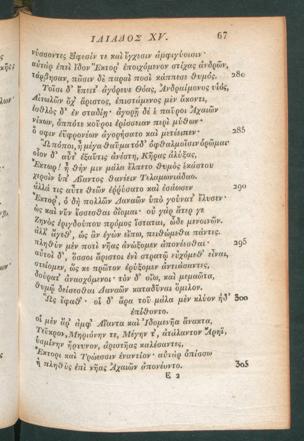 ΙΛΙΑΔΟΣ XV. 67
νύσσοντες ξίφεσίν τε καὶ ἔγχεσιν ἀμφιγύοισιν·
αὐτὰρ ἐπεὶ ἴδον Ἕκτορ' ἐποιχόμενον στίχας ἀνδρῶν,
τάρβησαν, πᾶσιν δὲ παραὶ ποσὶ κάππεσε θυμός. 280
Τοῖσι δ' ἔπειτ' ἀγόρευε Θόας, Ἀνδραίμονος υἱός,
Αἰτωλῶν ὄχ' ἄριστος, ἐπιστάμενος μὲν ἄκοντι,
ἐσθλὸς δ' ἐν σταδίῃ· ἀγορῇ δέ ἑ παῦροι Ἀχαιῶν
νίκων, ὁππότε κοῦροι ἐρίσσειαν περὶ μύθων·
ὅ σφιν ἐϋφρονέων ἀγορήσατο καὶ μετέειπεν· 285
Ὢ πόποι, ἦ μέγα θαῦμα τόδ' ὀφθαλμοῖσιν ὁρῶμαι·
οἷον δ' αὖτ' ἐξαῦτις ἀνέστη, Κῆρας ἀλύξας,
Ἕκτωρ! ἦ θήν μιν μάλα ἔλπετο θυμὸς ἑκάστου
χερσὶν ὑπ' Αἴαντος θανέειν Τελαμωνιάδαο.
ἀλλά τις αὖτε θεῶν ἐῤῥύσατο καὶ ἐσάωσεν 290
Ἕκτορ', ὃ δὴ πολλῶν Δαναῶν ὑπὸ γούνατ' ἔλυσεν·
ὡς καὶ νῦν ἔσσεσθαι ὀΐομαι· οὐ γὰρ ἄτερ γε
Ζηνὸς ἐριγδούπου πρόμος ἵσταται, ὧδε μενοινῶν.
ἀλλ' ἄγεθ', ὡς ἂν ἐγὼν εἴπω, πειθώμεθα πάντες.
πληθὺν μὲν ποτὶ νῆας ἀνώξομεν ἀπονέεσθαι· 295
αὐτοὶ δ', ὅσσοι ἄριστοι ἐνὶ στρατῷ εὐχόμεθ' εἶναι,
στείομεν, ὥς κε πρῶτον ἐρύξομεν ἀντιάσαντες,
δούρατ' ἀνασχόμενοι· τὸν δ' οἴω, καὶ μεμαῶτα,
θυμῷ δείσεσθαι Δαναῶν καταδῦναι ὅμιλον.
Ὣς ἔφαθ'· οἱ δ' ἄρα τοῦ μάλα μὲν κλύον ἠδ' 300
ἐπίθοντο.
οἱ μὲν ἄρ' ἀμφ' Αἴαντα καὶ Ἰδομενῆα ἄνακτα,
Τεῦκρον, Μηριόνην τε, Μέγην τ', ἀτάλαντον Ἄρηϊ,
ὑσμίνην ἤρτυνον, ἀριστῆας καλέσαντες,
Ἕκτορι καὶ Τρώεσσιν ἐναντίον· αὐτὰρ ὀπίσσω
ἡ πληθὺς ἐπὶ νῆας Ἀχαιῶν ἀπονέοντο. 305
E 2